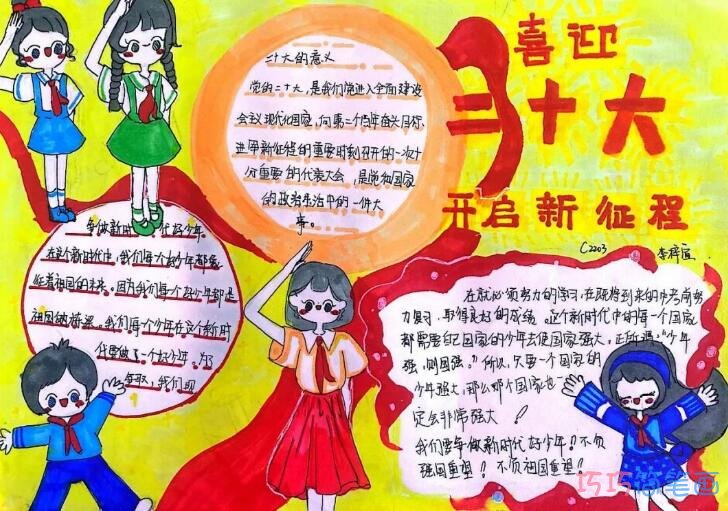 喜迎
二十大
开启新征程
C2203
二十大的意义
党的二十大，是我们党进入全面建设
会议现代化国家，向第二个百年奋斗目标
进军新征程的重要时刻召开的一次十
分重要的代表大会，是党和国家
的政治生活中的一件大
事。
争做新时代好少年
在这个新时代中，我们每个好少年都象
征着祖国的未来。因为我们每个好少年都是
祖国的栋梁。我们每一个少年在这个新时
代要做了一个好少年。为了
我们现
在就必须努力的学习，在既将到来的中考前努
力复习，取得良好的成绩。这个新时代中的每一个国家
都需要自己国家的少年去使国家强大，正所谓"少年
强，则国强。"所以，只要一个国家的
少年强大，那么哪个国家也一
定会非常强大！
我们要争做新时代好少年！不负
强国重望！不负祖国重望！
巧巧简笔画